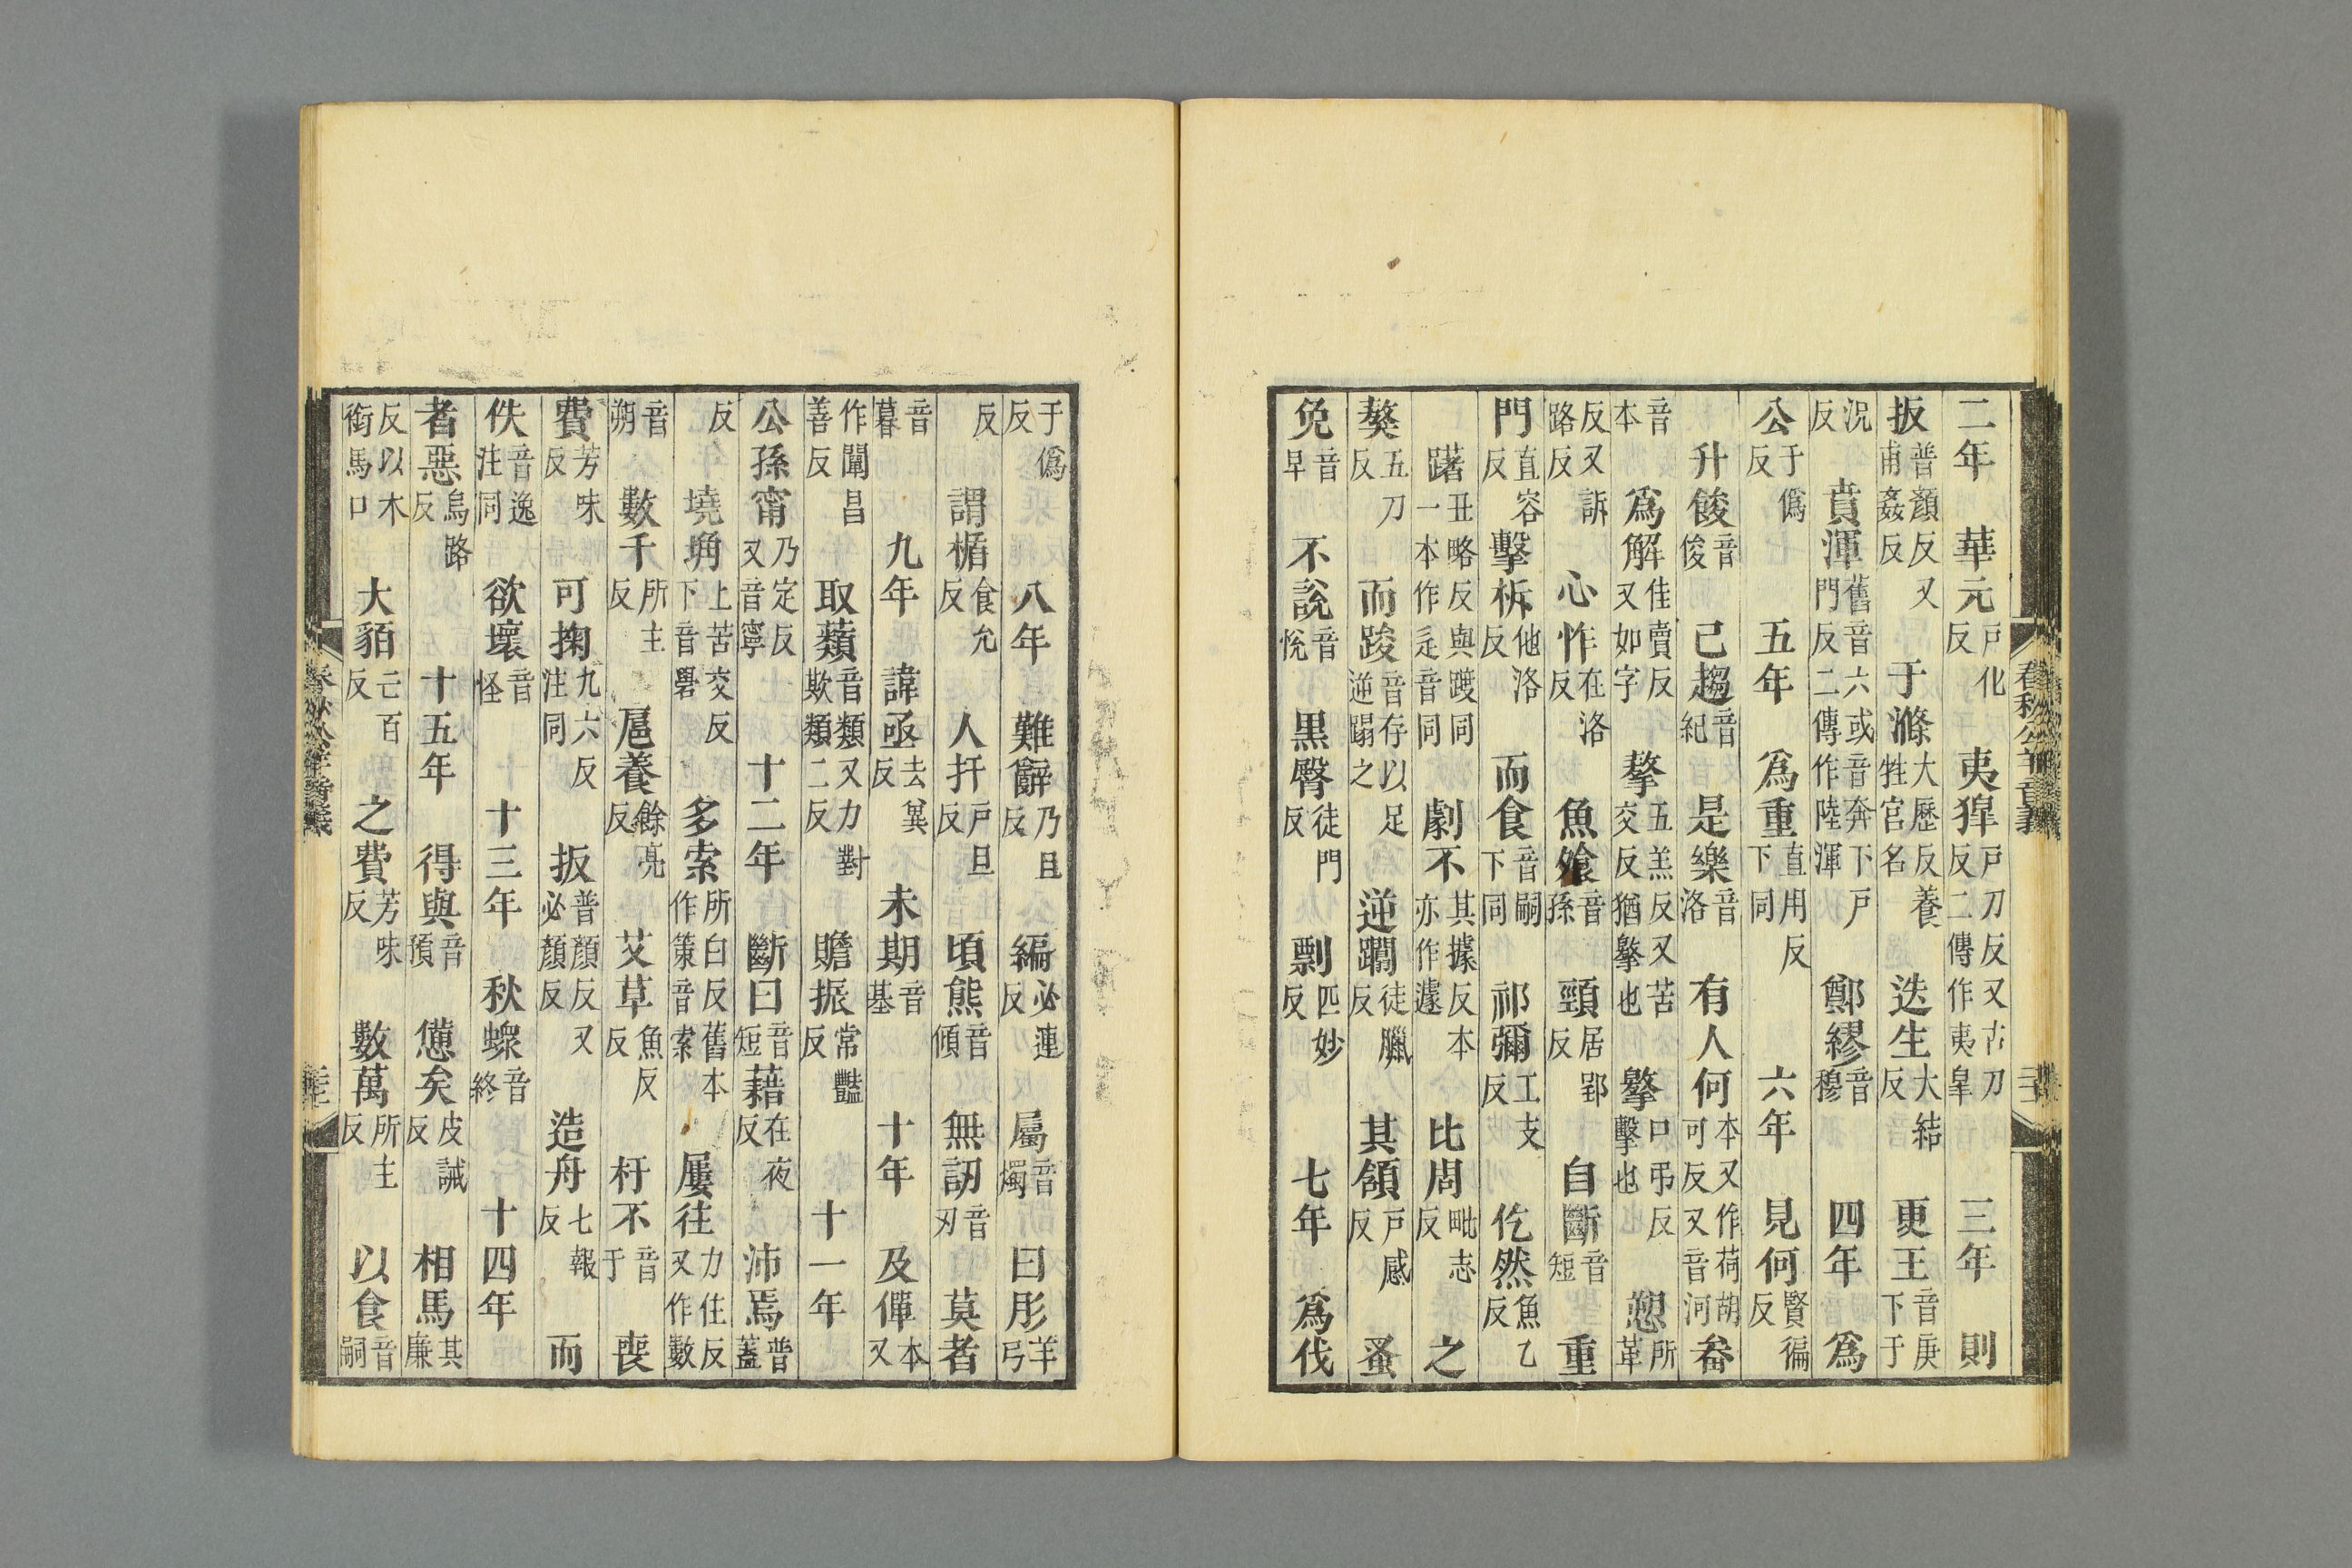 二年　華元戶化反　夷獋戶刀反又古刀反二傳作夷皐　三年　則
扳普顏反又甫姦反　于滌大歷反養牲宮名　迭生大結反　更王音庚下于
況反　賁渾舊音六或音奔下戶門反二傳作陸渾　鄭繆音穆　四年　爲
公于僞反　五年　爲重直用反下同　六年　見何賢徧反
升餕音俊　己趨音紀　是樂音洛　有人何本又作荷胡可反又音河　畚
音本　爲解佳賣反又如字　摮五羔反又苦交反猶擊也　擊口弔反擊也　愬所革
反又訴路反　心怍在洛反　魚飧音孫　頸居郢反　自斷音短　重
門直容反　擊柝他洛反　而食音嗣下同　祁彌工支反　仡然魚乙反
躇丑略反與躒同一本作辵音同　劇不其據反本亦作遽　比周毗志反　之
獒五刀反　而踆音存以足逆蹋之　逆躢徒臘反　其頷戶感反　蚤
免音早　不說音悅　黑臀徒門反　剽匹妙反　七年　爲伐
于僞反　八年　難辭乃旦反　編必連反　屬音燭　曰肜羊弓
反　謂楯食允反　人扞戶旦反　頃熊音傾　無訒音刃　莫者
音暮　九年　諱亟去冀反　未期音基　十年　及僤本又
作闡昌善反　取蘱音類又力對欺類二反　贍振常豔反　十一年
公孫甯乃定反又音寧　十二年　斷曰音短　藉在夜反　沛焉普蓋
反　墝埆上苦交反下音礐　多索所白反舊本作策音索　屢往力住反又作數
音朔　數千所主反　扈養餘亮反　艾草魚反反　杅不音于　喪
費芳味反　可掬九六反注同　扳普顏反又必顏反　造舟七報反　而
佚音逸注同　欲壞音怪　十三年　秋螽音終　十四年
者惡烏路反　十五年　得與音預　憊矣皮誡反　相馬其廉
反以木銜馬口　大貊亡百反　之費芳味反　數萬所主反　以食音嗣
春秋公羊音義